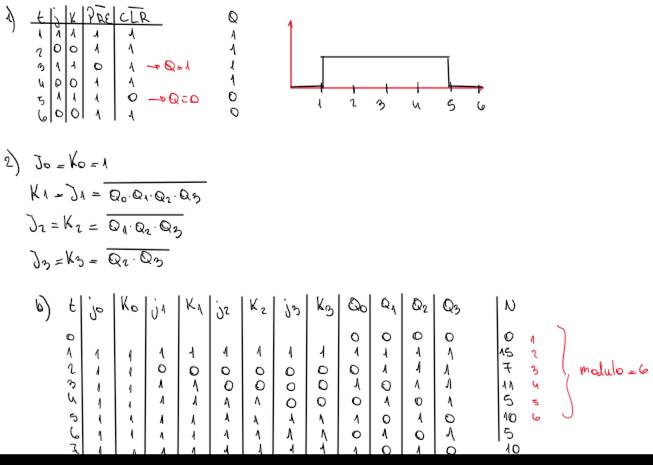 1) t j k P̅R̅E̅ C̅L̅R̅ Q
1 1 1 1 1 1
2 0 0 1 1 1
3 1 1 0 1 → Q=1 1
4 0 0 1 1 1
5 1 1 1 0 → Q=0 0
6 0 0 1 1 0
1 2 3 4 5 6
2) J0 = K0 = 1
K1 = J1 = Q̅0̅·̅Q̅1̅·̅Q̅2̅·̅Q̅3̅
J2 = K2 = Q̅1̅·̅Q̅2̅·̅Q̅3̅
J3 = K3 = Q̅2̅·̅Q̅3̅
b) t j0 K0 j1 K1 j2 K2 j3 K3 Q0 Q1 Q2 Q3 N
0 0 0 0 0 0 1
1 1 1 1 1 1 1 1 1 1 1 1 1 15 2
2 1 1 0 0 0 0 0 0 0 1 1 1 7 3 modulo = 6
3 1 1 1 1 0 0 0 0 1 0 1 1 11 4
4 1 1 1 1 1 1 0 0 0 1 0 1 5 5
5 1 1 1 1 1 1 1 1 1 0 1 0 10 6
6 1 1 1 1 1 1 1 1 0 1 0 1 5
7 1 1 1 1 1 1 1 1 1 0 1 0 10